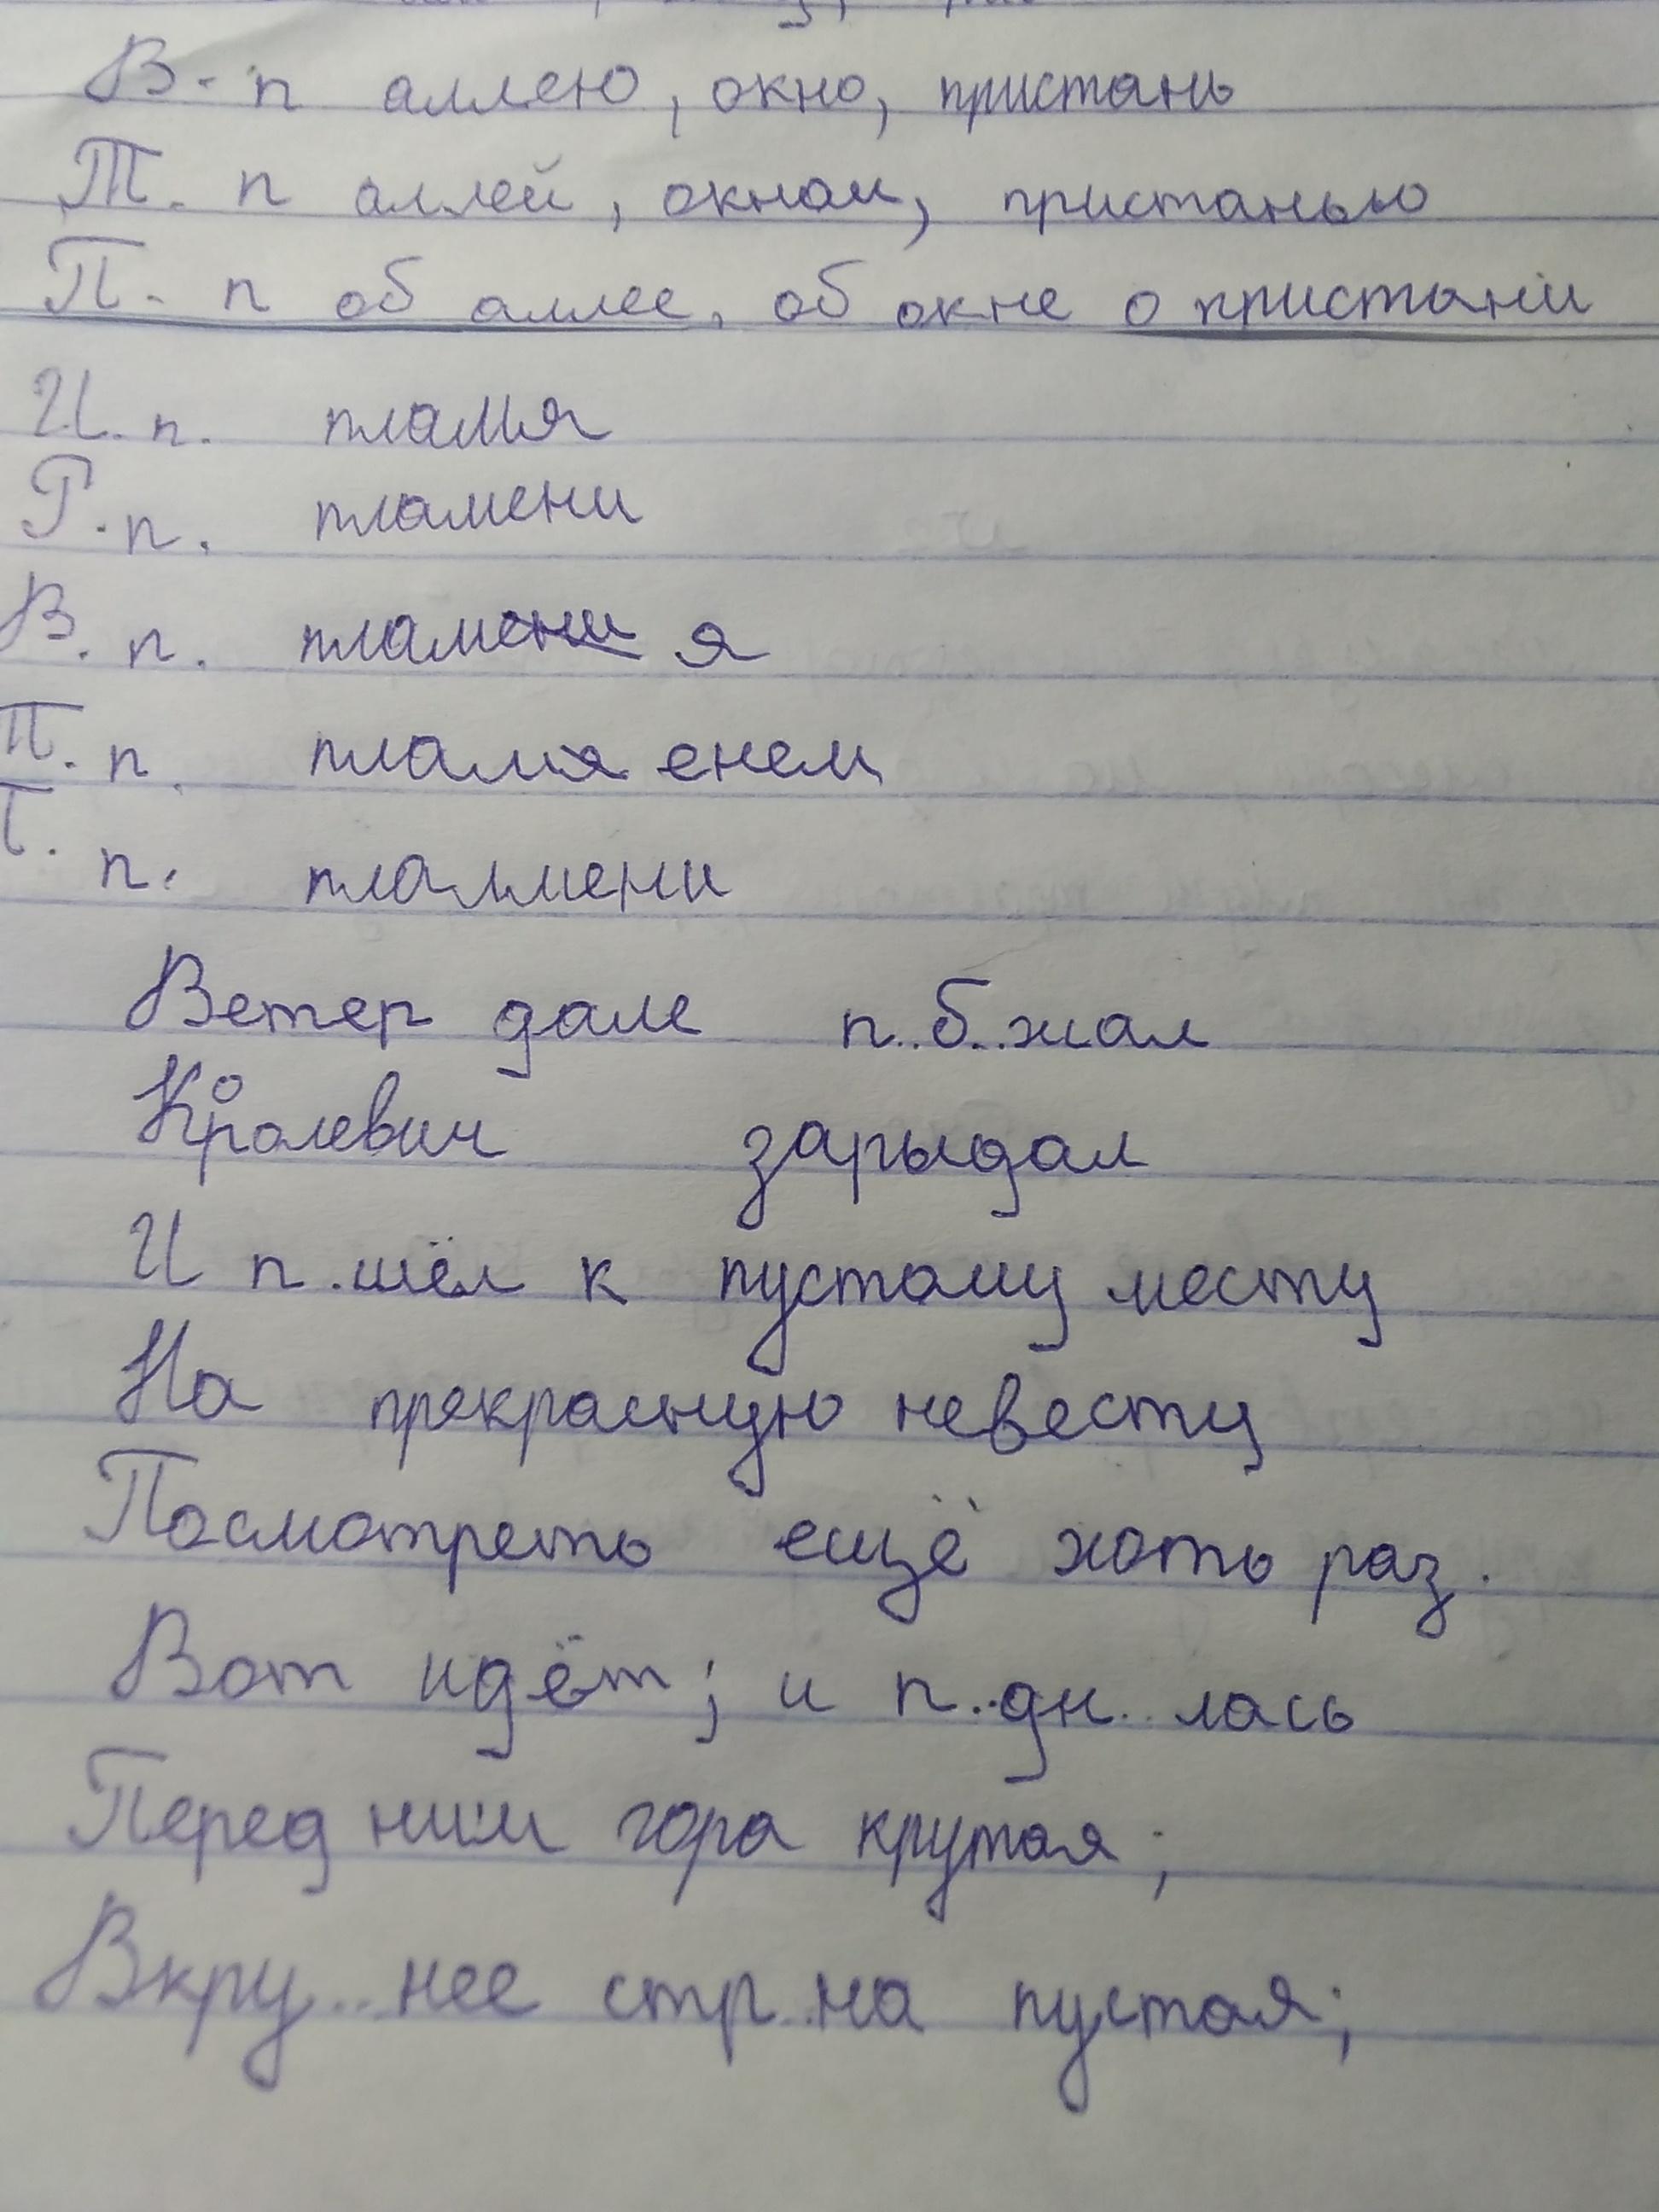 В. п аллею, окно, пристань
Т. п аллей, окном, пристанью
П. п об аллее, об окне о пристани
И. п. пламя
Р. п. пламени
В. п. пламени я
П. п. пламя енем
Т. п. пламмени
Ветер дале п..б..жал
Королевич зарыдал
И п.шёл к пустому месту
На прекрасную невесту
Посмотреть ещё хоть раз.
Вот идёт; и п..дн..лась
Перед ним гора крутая;
Вкру..нее стр..на пустая;